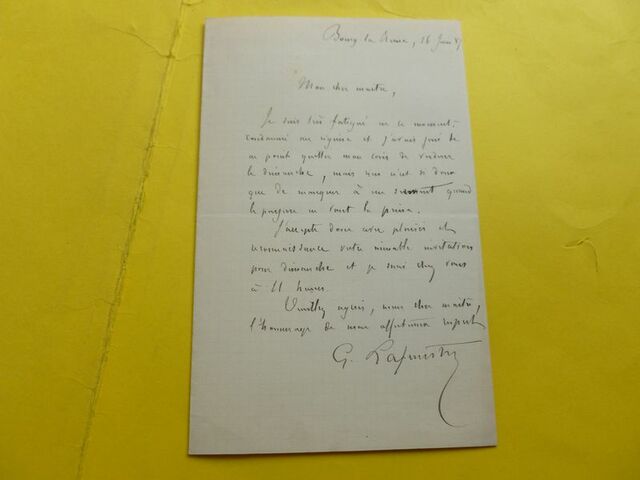 Bourg la Reine, 16 Juin 8
Mon cher maître,
Je suis très fatigué en ce moment,
condamné au régime et j'avais juré de
ne point quitter mon coin de verdure
le dimanche, mais rien n'est si doux
que de manquer à un serment quand
le parjure en vaut la peine.
J'accepte donc avec plaisir et
reconnaissance votre aimable invitation
pour dimanche et je serai chez vous
à 11 heures.
Veuillez agréer, mon cher maître,
l'hommage de mon affectueux respect
G. Lafenestre